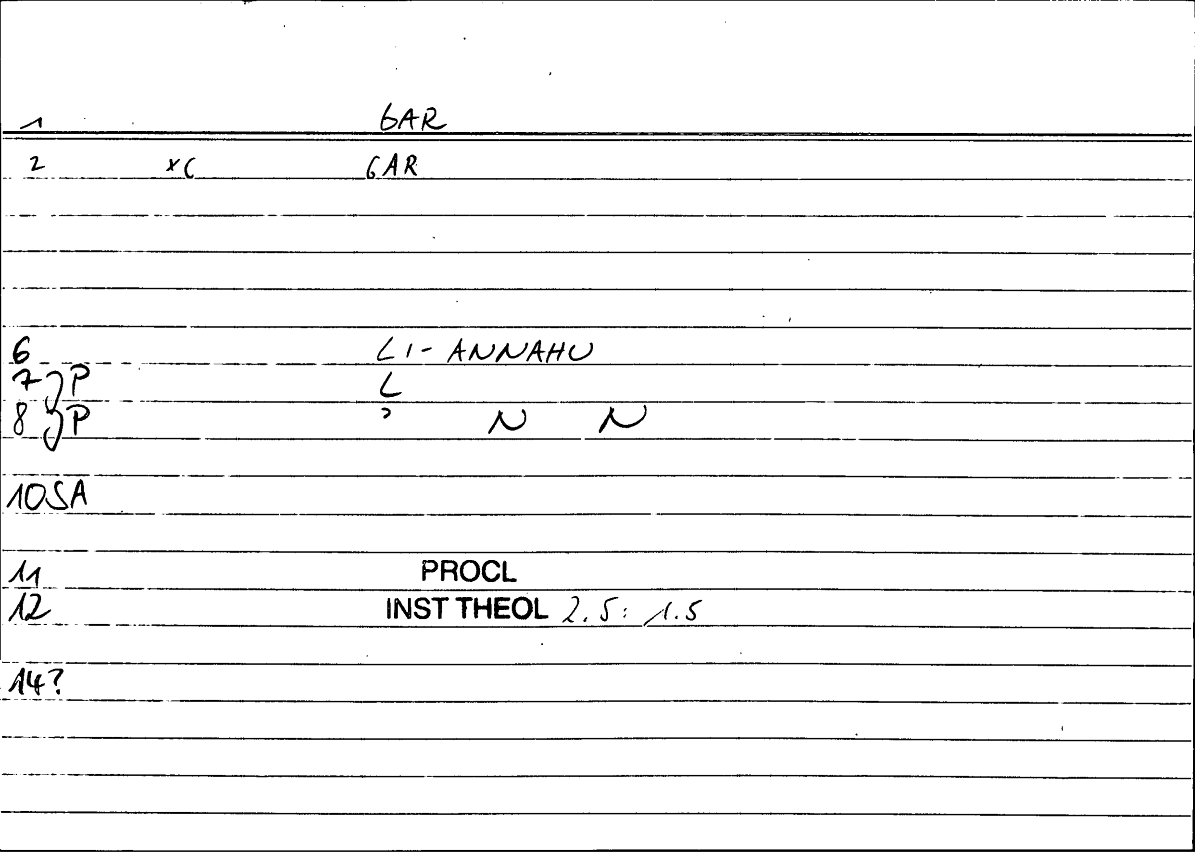 1 GAR
2 *C GAR
6 LI-ANNAHU
7 JP L
8 JP ? N N
10SA
11 PROCL
12 INST THEOL 2.5: 1.5
14?